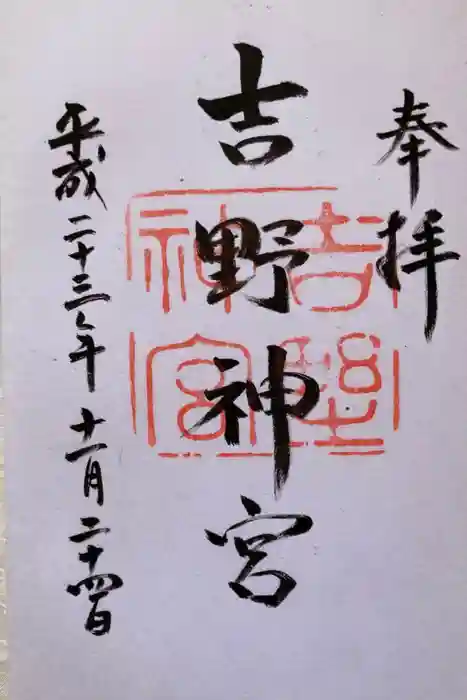 奉拝
吉野神宮
平成二十三年十一月二十四日
吉野神宮